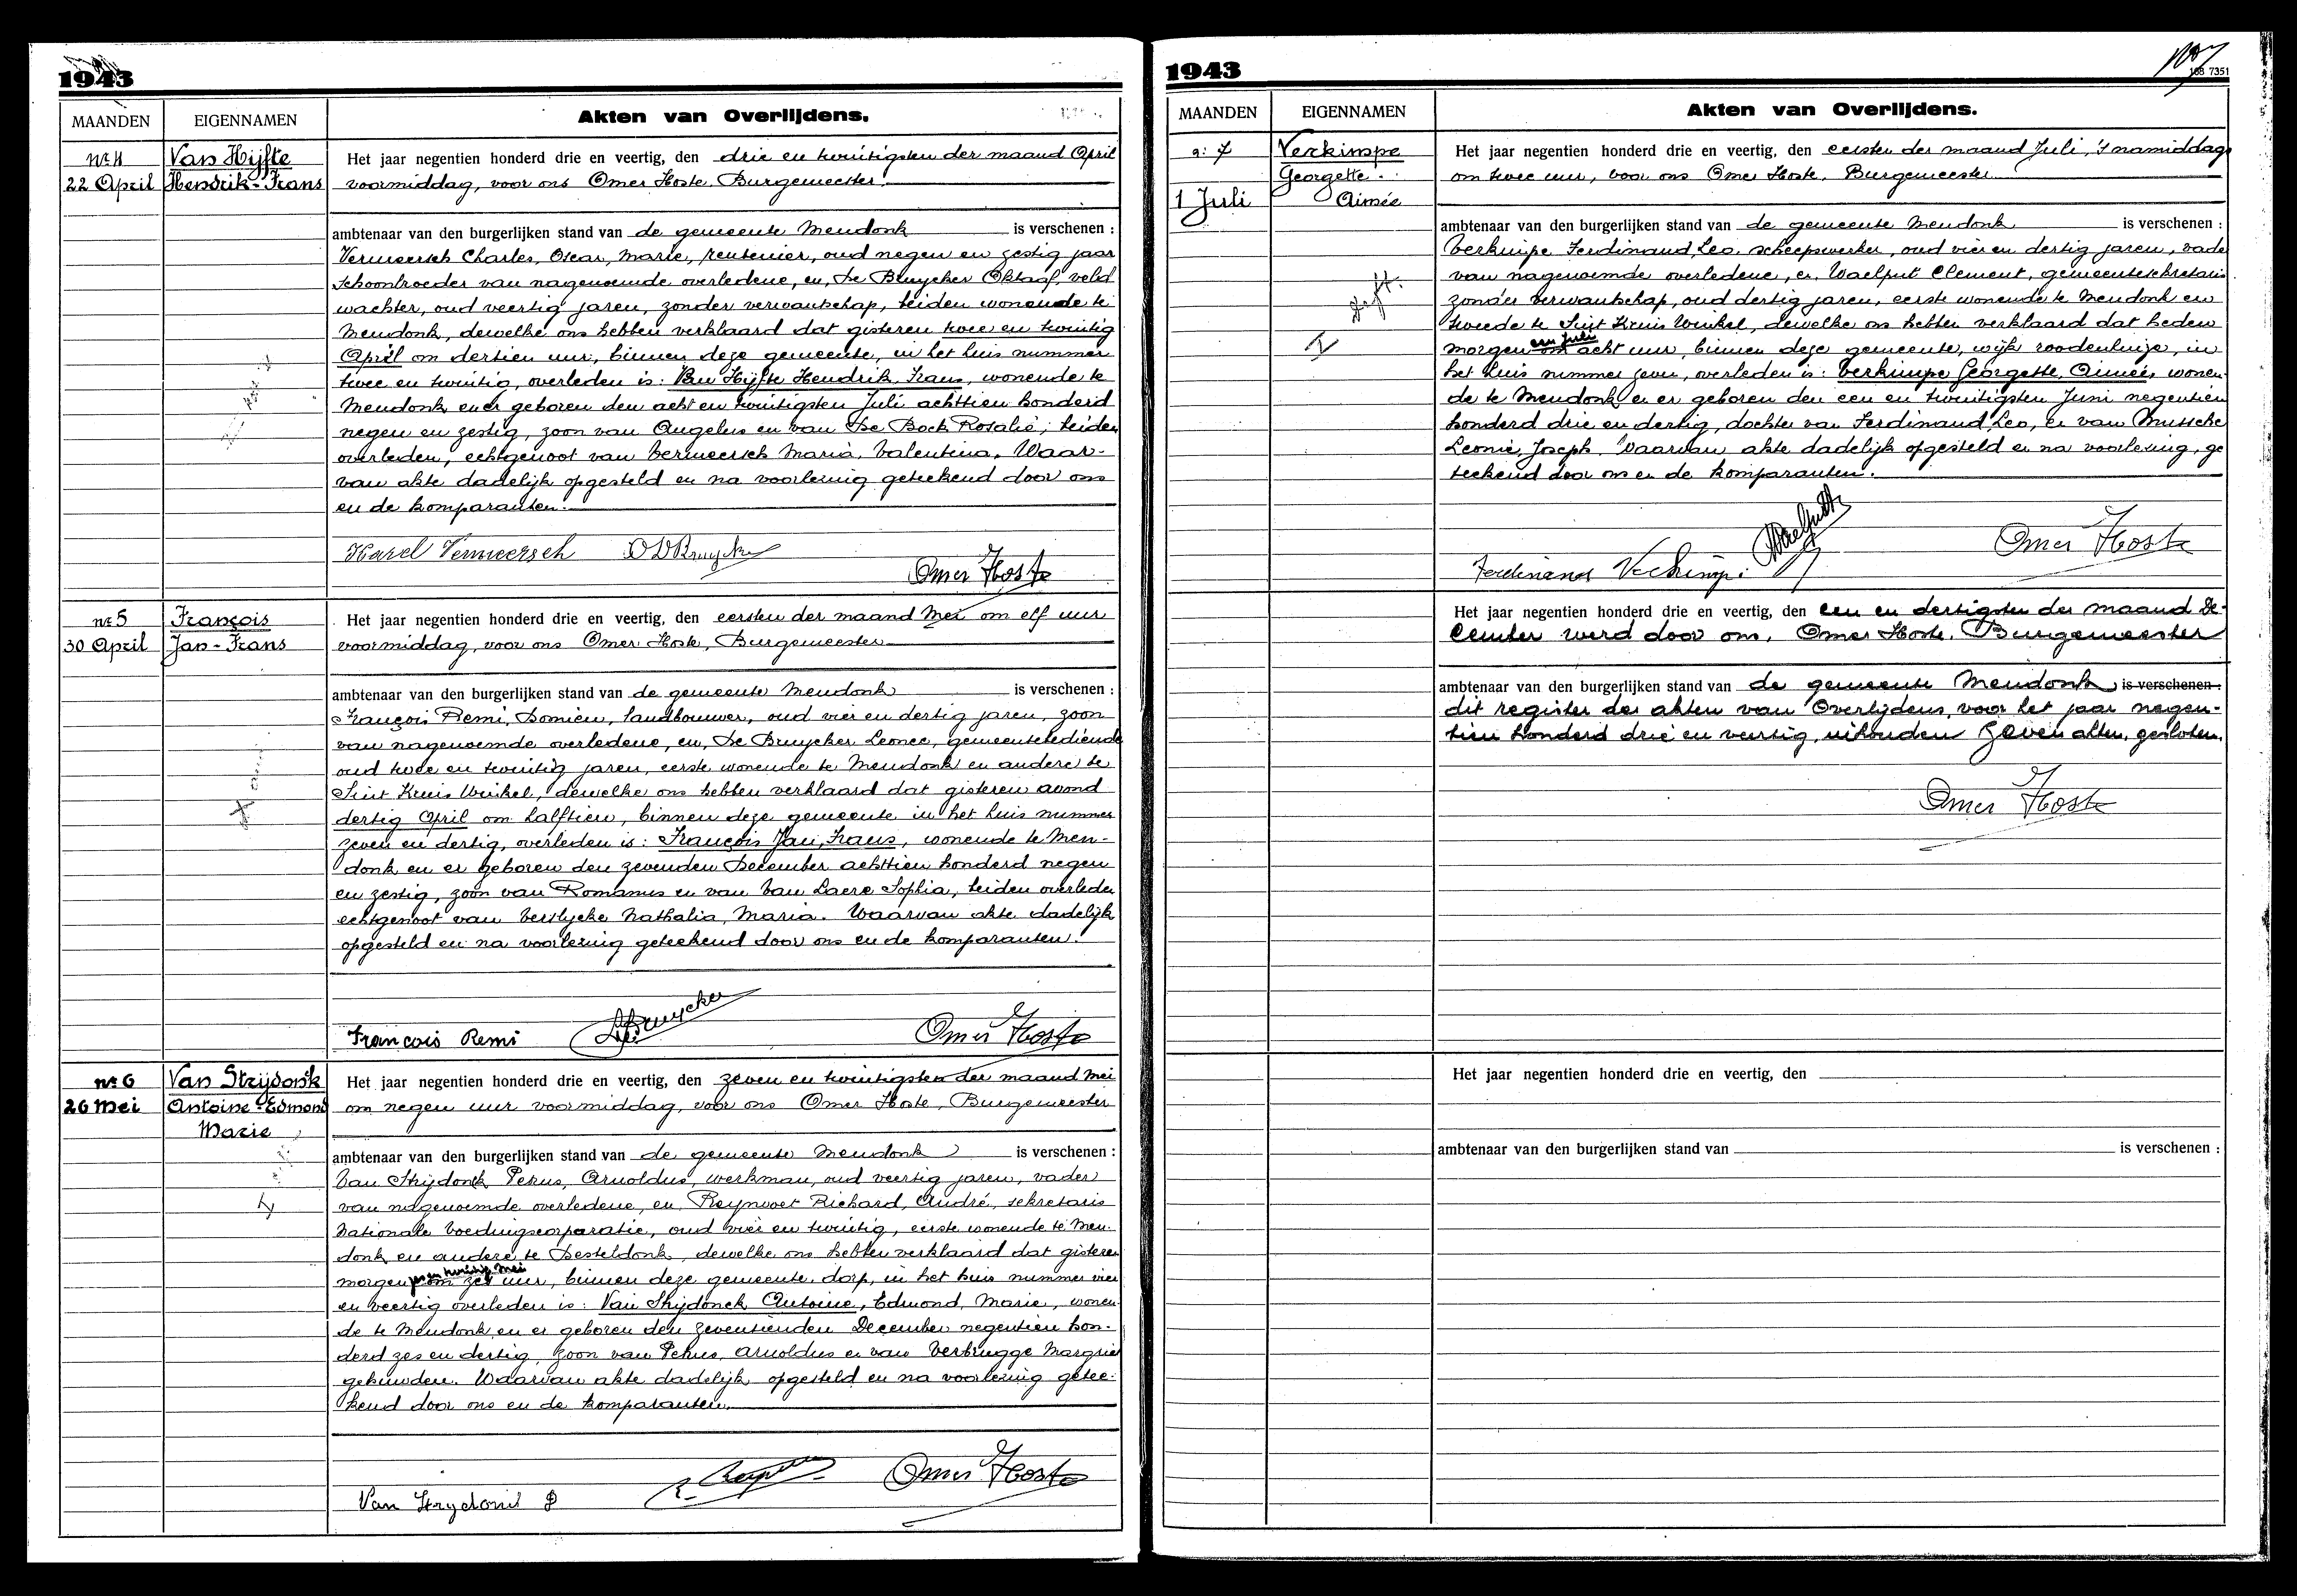 1943
MAANDEN
EIGENNAMEN
Akten van Overlijdens.
Nr 4
22 April
Van Hijfte
Hendrik-Frans
Het jaar negentien honderd drie en veertig, den drie en twintigsten der maand April
voormiddag, voor ons Omer Hoste, Burgemeester
ambtenaar van den burgerlijken stand van de gemeente Mendonk is verschenen :
Vermeersch Charles, Oscar, Marie, rentenier, oud negen en zestig jaar
schoonbroeder van nagenoemde overledene, en, De Bruycker Oktaaf, veld
wachter, oud veertig jaren, zonder verwantschap, beiden wonende te
Mendonk, dewelke ons hebben verklaard dat gisteren twee en twintig
April om dertien uur, binnen deze gemeente, in het huis nummer
twee en twintig, overleden is: Van Hijfte Hendrik, Frans, wonende te
Mendonk en er geboren den acht en twintigsten Juli achttien honderd
negen en zestig, zoon van Angelus en van De Bock Rosalie, beiden
overleden, echtgenoot van Vermeersch Maria, Valentina. Waar-
van akte dadelijk opgesteld en na voorlezing geteekend door ons
en de komparanten.
Karel Vermeersch O DBruycker
Omer Hoste
Nr 5
30 April
François
Jan-Frans
Het jaar negentien honderd drie en veertig, den eersten der maand Mei om elf uur
voormiddag, voor ons Omer Hoste, Burgemeester
ambtenaar van den burgerlijken stand van de gemeente Mendonk is verschenen :
François Remi, Domien, landbouwer, oud vier en dertig jaren, zoon
van nagenoemde overledene, en, De Bruycker Leonce, gemeentebediende
oud twee en twintig jaren, eerste wonende te Mendonk en andere te
Sint Kruis Winkel, dewelke ons hebben verklaard dat gisteren avond
dertig April om halftien, binnen deze gemeente in het huis nummer
zeven en dertig, overleden is: François Jan, Frans, wonende te Men-
donk en er geboren den zevenden December achttien honderd negen
en zestig, zoon van Romanus en van Van Laere Sophia, beiden overleden
echtgenoot van Verslycke Nathalia, Maria. Waarvan akte dadelijk
opgesteld en na voorlezing geteekend door ons en de komparanten.
François Remi
Omer Hoste
Nr 6
26 Mei
Van Strijdonck
Antoine-Edmond
Marie
Het jaar negentien honderd drie en veertig, den zeven en twintigsten der maand Mei
om negen uur voormiddag, voor ons Omer Hoste, Burgemeester
ambtenaar van den burgerlijken stand van de gemeente Mendonk is verschenen :
Van Strijdonck Petrus, Arnoldus, werkman, oud veertig jaren, vader
van nagenoemde overledene, en, Reynvoet Richard, André, sekretaris
Nationale Voedingscorporatie, oud vier en twintig, eerste wonende te Men-
donk en andere te Desteldonk, dewelke ons hebben verklaard dat gisteren
zes en twintig Mei
morgen om zes uur, binnen deze gemeente, dorp, in het huis nummer vier
en veertig overleden is: Van Strijdonck Antoine, Edmond, Marie, wonen-
de te Mendonk en er geboren den zeventienden December negentien hon-
derd zes en dertig, zoon van Petrus, Arnoldus en van Verbrugge Margriet
gehuwden. Waarvan akte dadelijk opgesteld en na voorlezing getee-
kend door ons en de komparanten.
Omer Hoste
1943
107
188 7351
MAANDEN
EIGENNAMEN
Akten van Overlijdens.
n: 7
1 Juli
Verkimpe
Georgette
Aimée
Het jaar negentien honderd drie en veertig, den eersten der maand Juli, 's namiddag
om twee uur, voor ons Omer Hoste, Burgemeester
ambtenaar van den burgerlijken stand van de gemeente Mendonk is verschenen :
Verkimpe Ferdinand, Leo, scheepswerker, oud vier en dertig jaren, vade
van nagenoemde overledene, en, Waelput Clement, gemeentesekretaris
zonder verwantschap, oud dertig jaren, eerste wonende te Mendonk en
tweede te Sint Kruis Winkel, dewelke ons hebben verklaard dat heden
een Juli
morgen om acht uur, binnen deze gemeente, wijk roodenhuize, in
het huis nummer zeven, overleden is: Verkimpe Georgette, Aimée, wonen-
de te Mendonk en er geboren den een en twintigsten Juni negentien
honderd drie en dertig, dochter van Ferdinand, Leo, en van Mussche
Leonie, Joseph. Waarvan akte dadelijk opgesteld en na voorlezing, ge
teekend door ons en de komparanten.
Omer Hoste
Ferdinand Verkimpe
Het jaar negentien honderd drie en veertig, den een en dertigsten der maand De-
cember werd door ons, Omer Hoste, Burgemeester
ambtenaar van den burgerlijken stand van de gemeente Mendonk is verschenen :
dit register der akten van Overlijdens, voor het jaar negen-
tien honderd drie en veertig, inhouden zeven akten, gesloten.
Omer Hoste
Het jaar negentien honderd drie en veertig, den
ambtenaar van den burgerlijken stand van is verschenen :